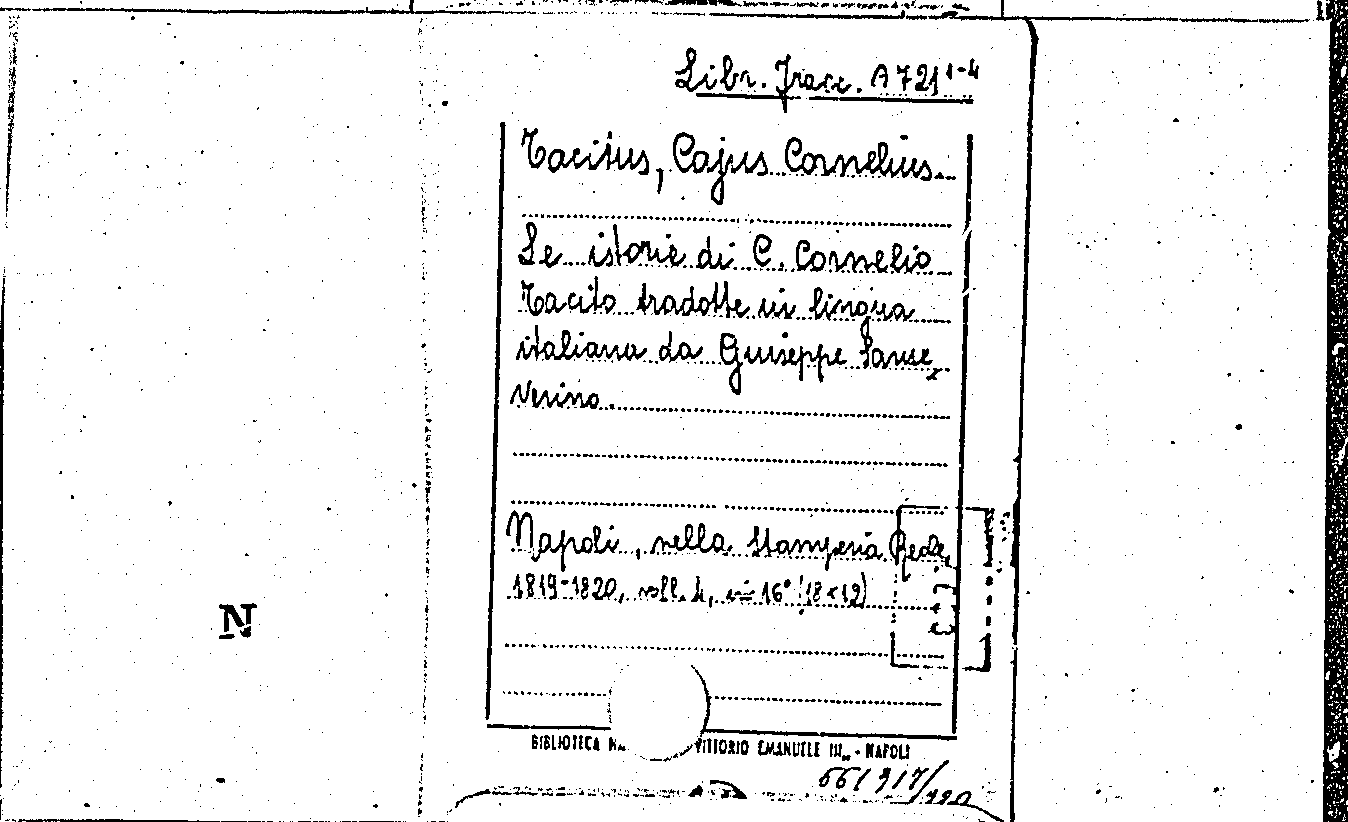 Libr. Fracc. A 721 1-4
Tacitus, Cajus Cornelius.
Le istorie di C. Cornelio
Tacito tradotte in lingua
italiana da Giuseppe Sanse
verino.
Napoli, nella Stamperia Reale,
1819-1820, voll. 4, in 16° (18×12)
N
BIBLIOTECA VITTORIO EMANUELE III„ - NAPOLI